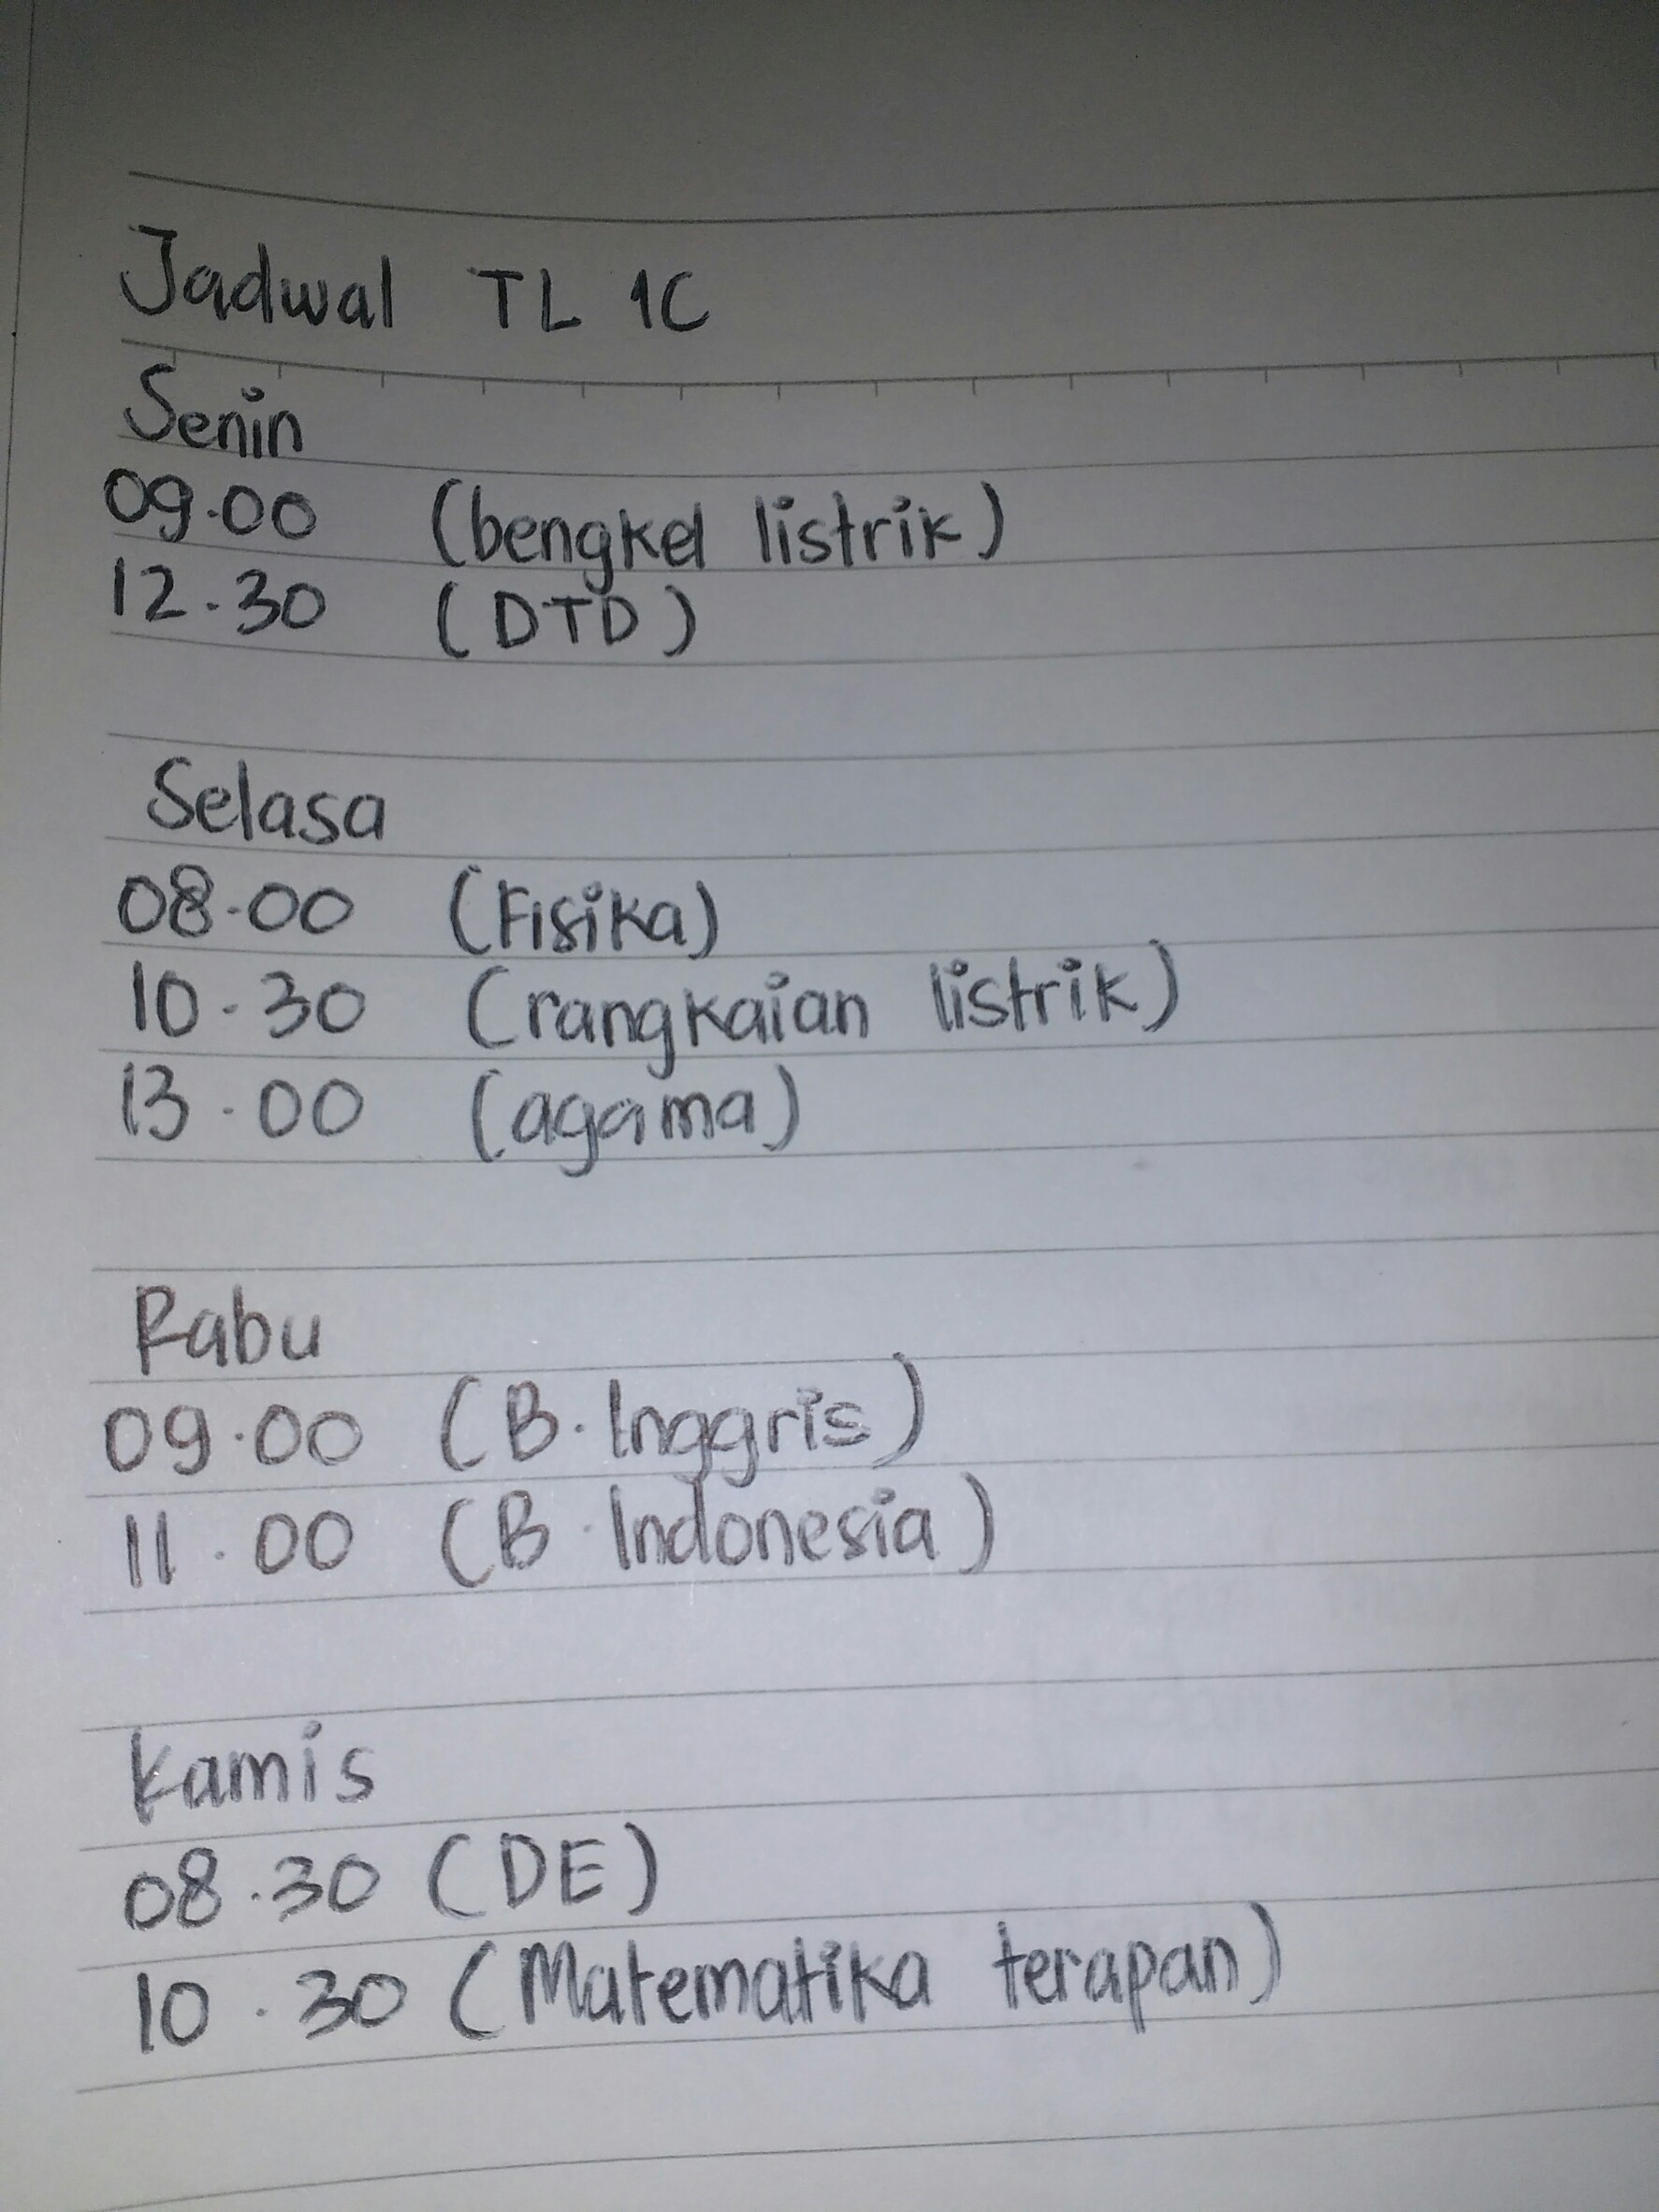 Jadwal TL 1C
Senin
09.00 (bengkel listrik)
12.30 (DTD)
Selasa
08.00 (Fisika)
10.30 (rangkaian listrik)
13.00 (agama)
Rabu
09.00 (B. Inggris)
11.00 (B. Indonesia)
Kamis
08.30 (DE)
10.30 (Matematika terapan)